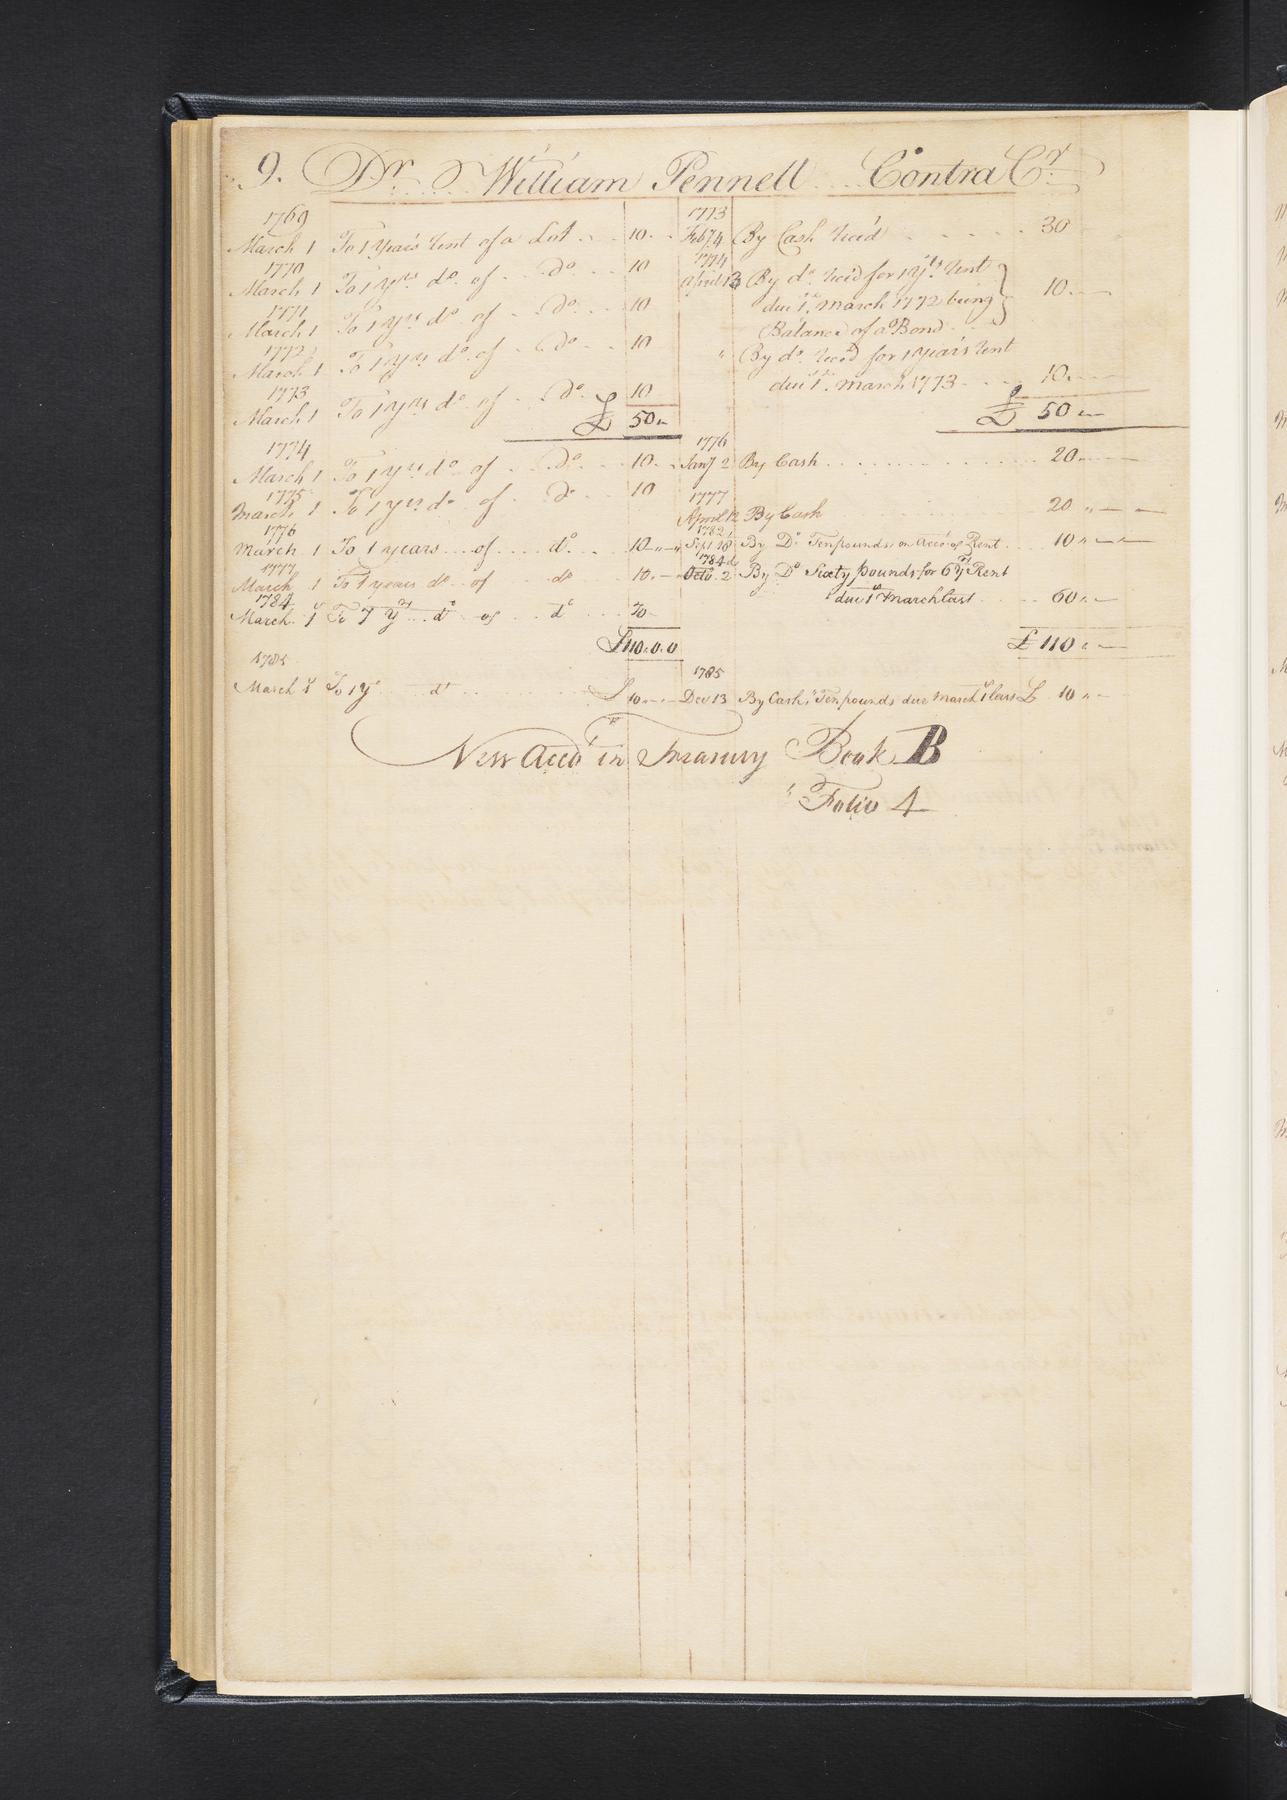 9. Dr. William Pennell Contra Cr.
1769
March 1 To 1 Year's Rent of a Lot 10
1770
March 1 To 1 Yrs do. of Do. 10
1771
March 1 To 1 Yrs do. of Do. 10
1772
March 1 To 1 Yrs do. of Do. 10
1773
March 1 To 1 Yrs do. of Do. 10
£ 50
1774
March 1 To 1 Yrs do. of Do. 10
1775
March 1 To 1 yrs do of do 10
1776
March 1 To 1 years of do. 10
1777
March 1 To 1 years do of do 10
1784
March 1st To 7 Yrs do of do 70
£110.0.0
1785
March 1st To 1 Yr do £ 10
1773
Feb 4 By Cash Rec'd 30
1774
April 13 By do. Rec'd for 1 Yrs. Rent
due 1st. March 1772 being
Balance of a Bond 10
" By do. Rec'd for 1 Year's Rent
due 1st. March 1773 10
£ 50
1776
Jany 2 By Cash 20
1777
April 12 By Cash 20
1782
Sept 18 By Do. Ten pounds on Acco. of Rent 10
1784
Octo. 2 By Do Sixty pounds for 6 Yrs Rent
due 1st March last 60
£ 110
1785
Dec 13 By Cash, Ten pounds due March 1st last £ 10
New Acco't in Treasury Book B
Folio 4